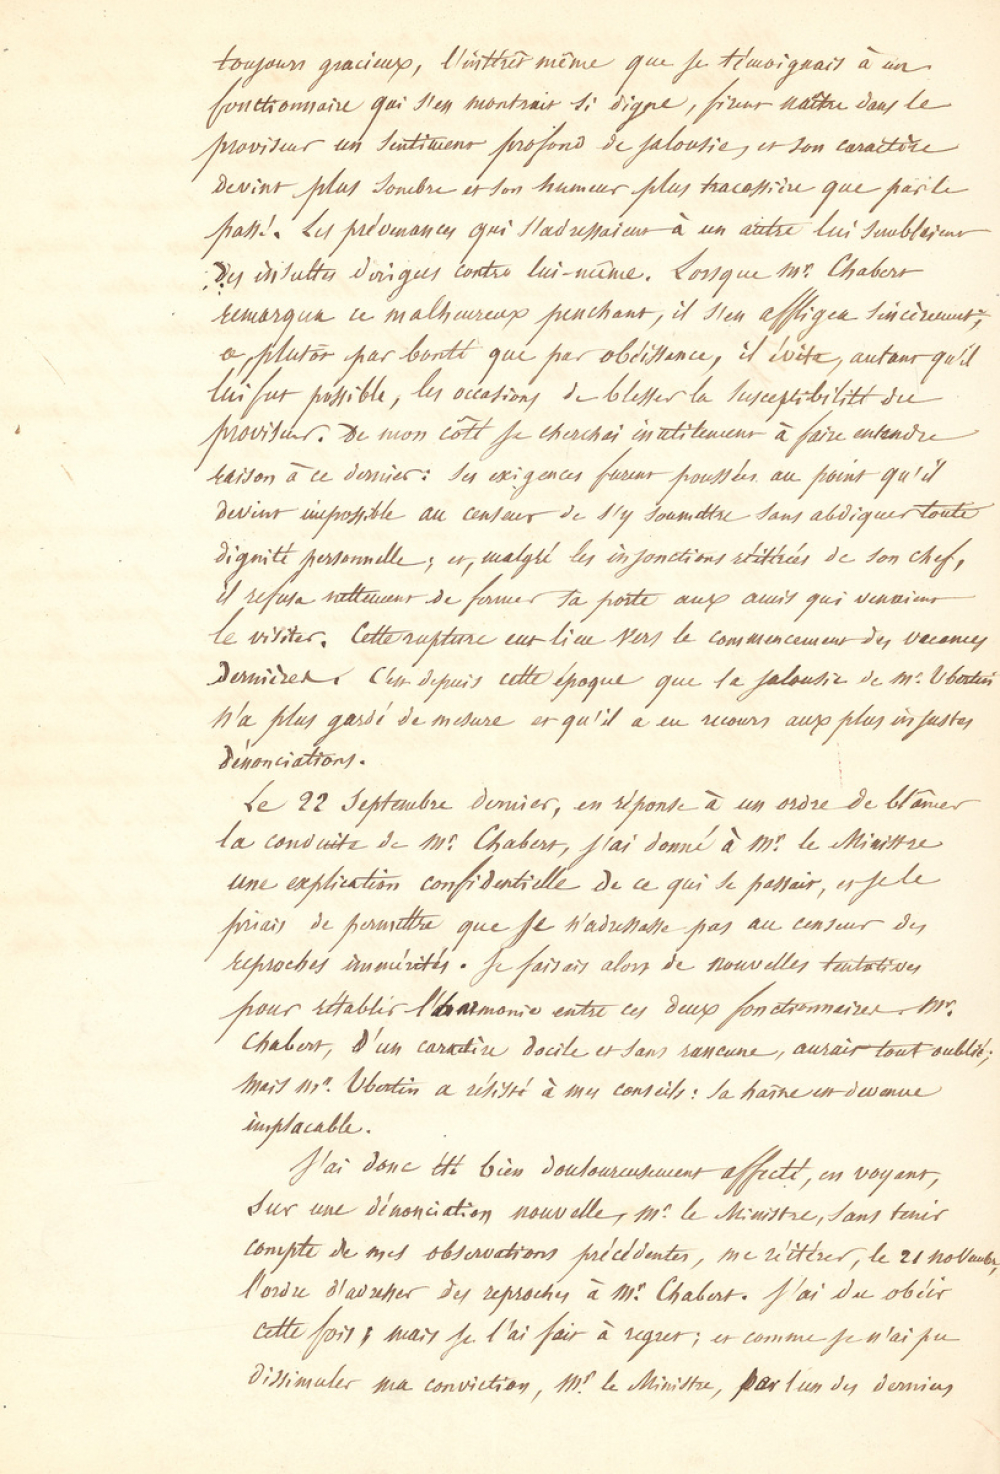 toujours gracieux, l'intérêt même que je témoignais à un
fonctionnaire qui s'en montrait si digne, firent naître dans le
proviseur un sentiment profond de jalousie, et son caractère
devint plus sombre et son humeur plus tracassière que par le
passé. Les prévenances qui s'adressaient à un autre lui semblaient
des insultes dirigées contre lui-même. Lorsque Mr. Chabert
remarqua ce malheureux penchant, il s'en affligea sincèrement,
et, plutôt par bonté que par obéissance, il évita, autant qu'il
lui fut possible, les occasions de blesser la susceptibilité du
proviseur. De mon côté je cherchai inutilement à faire entendre
raison à ce dernier: ses exigences furent poussées au point qu'il
devint impossible au censeur de s'y soumettre sans abdiquer toute
dignité personnelle; et, malgré les injonctions réitérées de son chef,
il refusa nettement de fermer sa porte aux amis qui venaient
le visiter. Cette rupture eut lieu vers le commencement des vacances
dernières. C'est depuis cette époque que la jalousie de Mr. Ubertin
n'a plus gardé de mesure et qu'il a eu recours aux plus injustes
dénonciations.
Le 22 Septembre dernier, en réponse à un ordre de blâmer
la conduite de Mr. Chabert, j'ai donné à Mr. le Ministre
une explication confidentielle de ce qui se passait, et je le
priais de permettre que je n'adressasse pas au censeur des
reproches immérités. Je faisais alors de nouvelles tentatives
pour rétablir l'harmonie entre ces deux fonctionnaires. Mr.
Chabert, d'un caractère docile et sans rancune, aurait tout oublié;
mais Mr. Ubertin a résisté à mes conseils: sa haîne est devenue
implacable.
J'ai donc été bien douloureusement affecté, en voyant,
sur une dénonciation nouvelle, Mr. le Ministre, sans tenir
compte de mes observations précédentes, me réitérer, le 21 novembre,
l'ordre d'adresser des reproches à Mr. Chabert. J'ai du obéir
cette fois; mais je l'ai fait à regret; et comme je n'ai pu
dissimuler ma conviction, Mr. le Ministre, par l'un des derniers